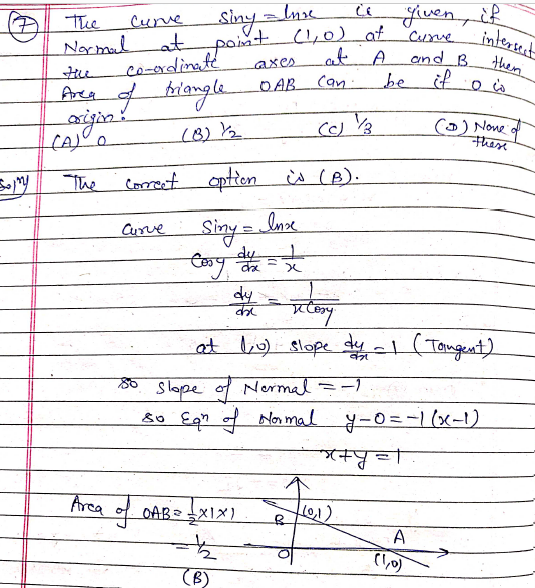 7 The curve siny = lnx is given, if
Normal at point (1,0) at curve intersect
the co-ordinate axes at A and B then
Area of triangle OAB can be if O is
origin:
(A) 0 (B) 1/2 (C) 1/3 (D) None of these
Soln The correct option is (B).
Curve Siny = lnx
Cosy dy/dx = 1/x
dy/dx = 1/(x Cosy)
at (1,0) slope dy/dx = 1 (Tangent)
so slope of Normal = -1
so Eqn of Normal y-0 = -1(x-1)
x+y = 1
Area of OAB = 1/2 x1x1
B (0,1)
= 1/2
A
O
(1,0)
(B)